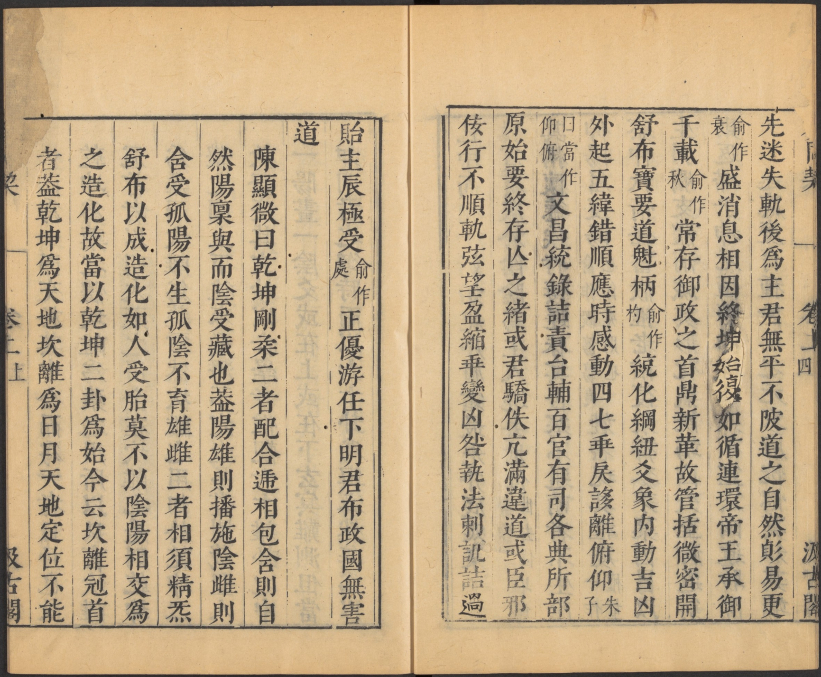 先迷失軌後爲主君無平不陂道之自然變易更
俞作衰盛消息相因終坤始復如循連環帝王承御
千載俞作秋常存御政之首鼎新革故管括微密開
舒布寶要道魁柄俞作杓統化綱紐爻象内動吉凶
外起五緯錯順應時感動四七乖戾誃離俯仰朱子
曰當作仰俯文昌統錄詰責台輔百官有司各典所部
原始要終存亾之緒或君驕佚亢滿違道或臣邪
佞行不順軌弦望盈縮乖變凶咎執法刺譏詰過
貽主辰極受俞作處正優游任下明君布政國無害
道
陳顯微曰乾坤剛柔二者配合遞相包含則自
然陽稟與而陰受藏也葢陽雄則播施陰雌則
含受孤陽不生孤陰不育雄雌二者相須精炁
舒布以成造化如人受胎莫不以陰陽相交爲
之造化故當以乾坤二卦爲始今云坎離冠首
者葢乾坤爲天地坎離爲日月天地定位不能
契
卷上
四
汲古閣
契
卷二上
汲古閣